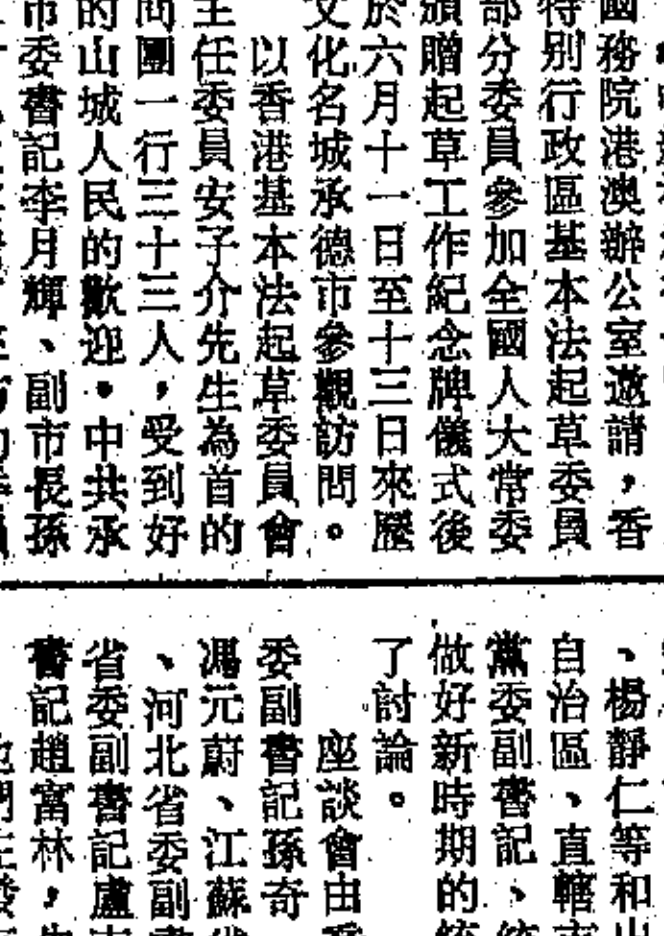 國務院港澳辦公室邀請，香
特別行政區基本法起草委員
部分委員參加全國人大常委
頒贈起草工作紀念牌儀式後
於六月十一日至十三日來歷
文化名城承德市參觀訪問。
以香港基本法起草委員會
主任委員安子介先生為首的
問團一行三十三人，受到好
的山城人民的歡迎。中共承
市委書記李月輝、副市長孫
、楊靜仁等和
自治區、直轄市
黨委副書記、統
做好新時期的統
了討論。
座談會由
委副書記孫奇
馮元蔚、江蘇
、河北省委副書
省委副書記盧
書記趙富林，